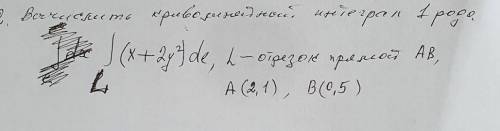 Вычислить криволинейный интеграл 1 рода.
∫(x+2y²)dl, L – отрезок прямой AB,
L
A(2,1), B(0,5)